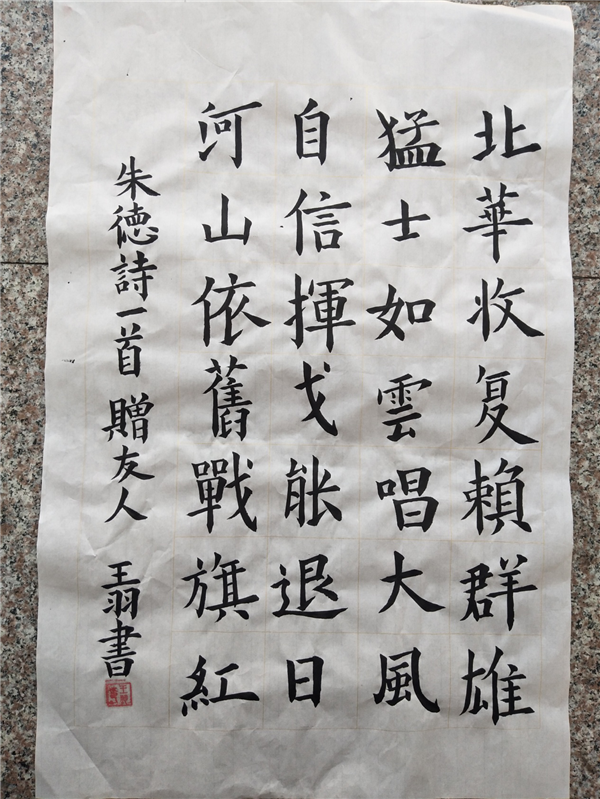 北華收复賴群雄
猛士如雲唱大風
自信揮戈能退日
河山依舊戰旗紅
朱德詩一首 贈友人 王羽書